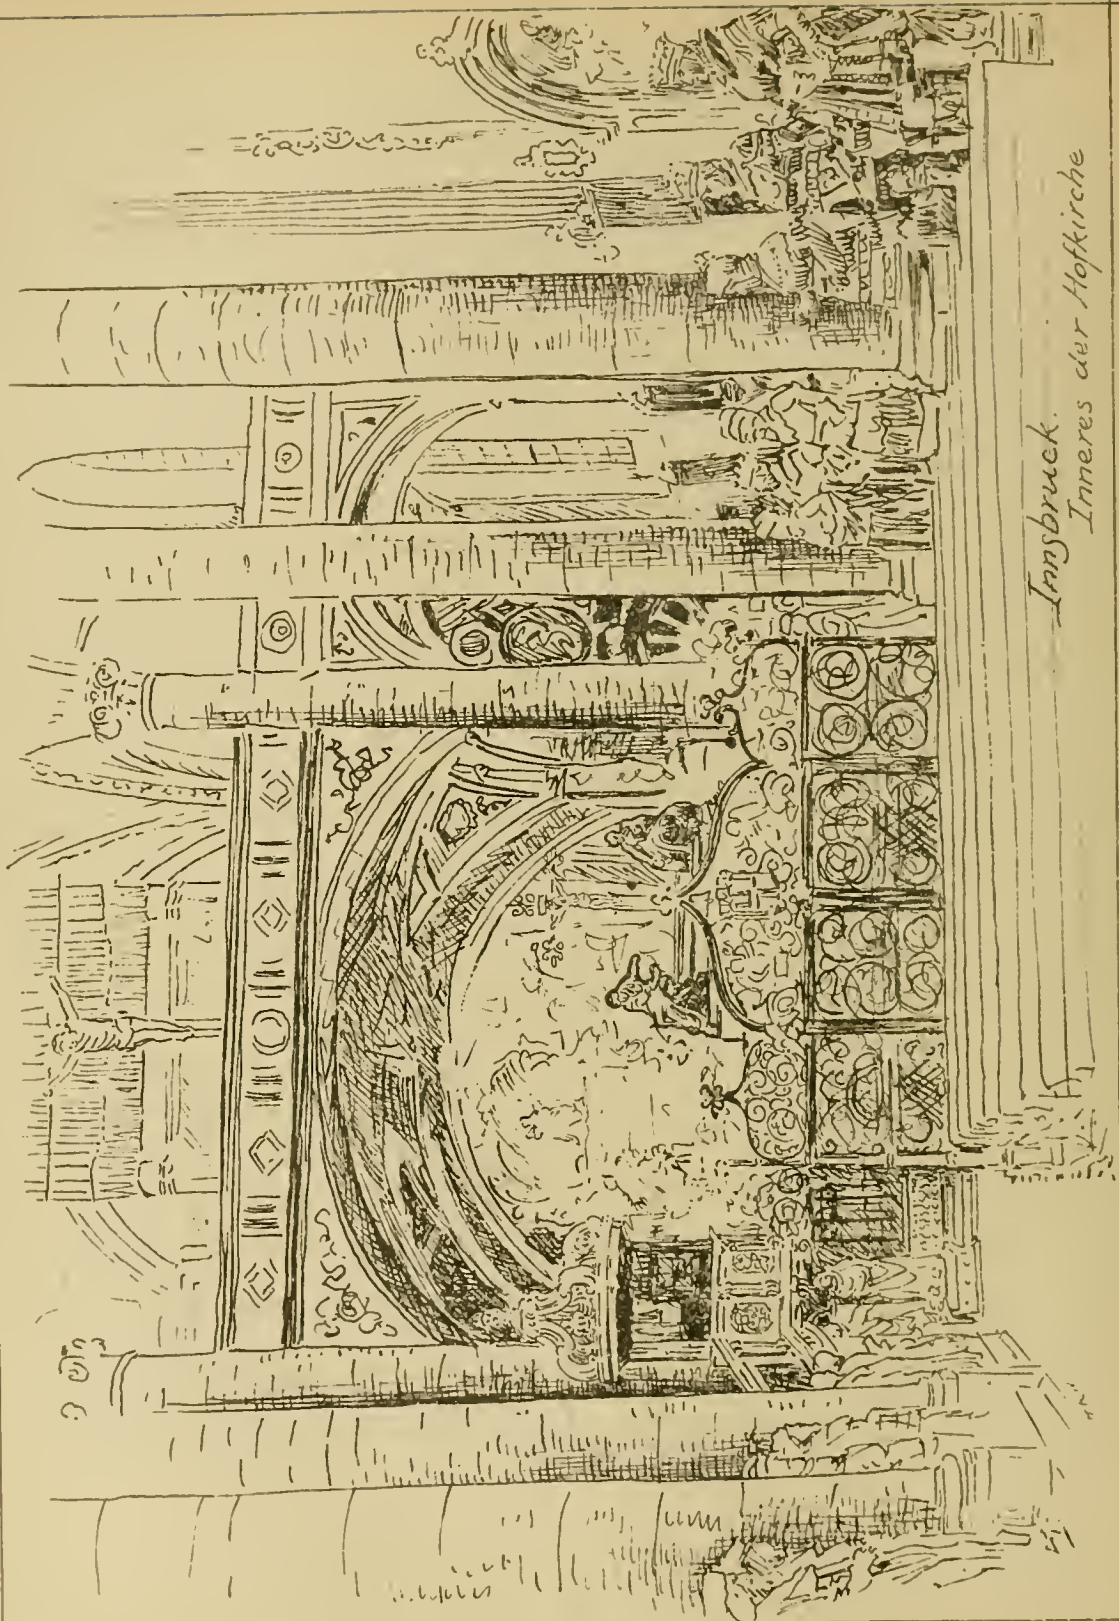 Innsbruck.
Inneres der Hofkirche